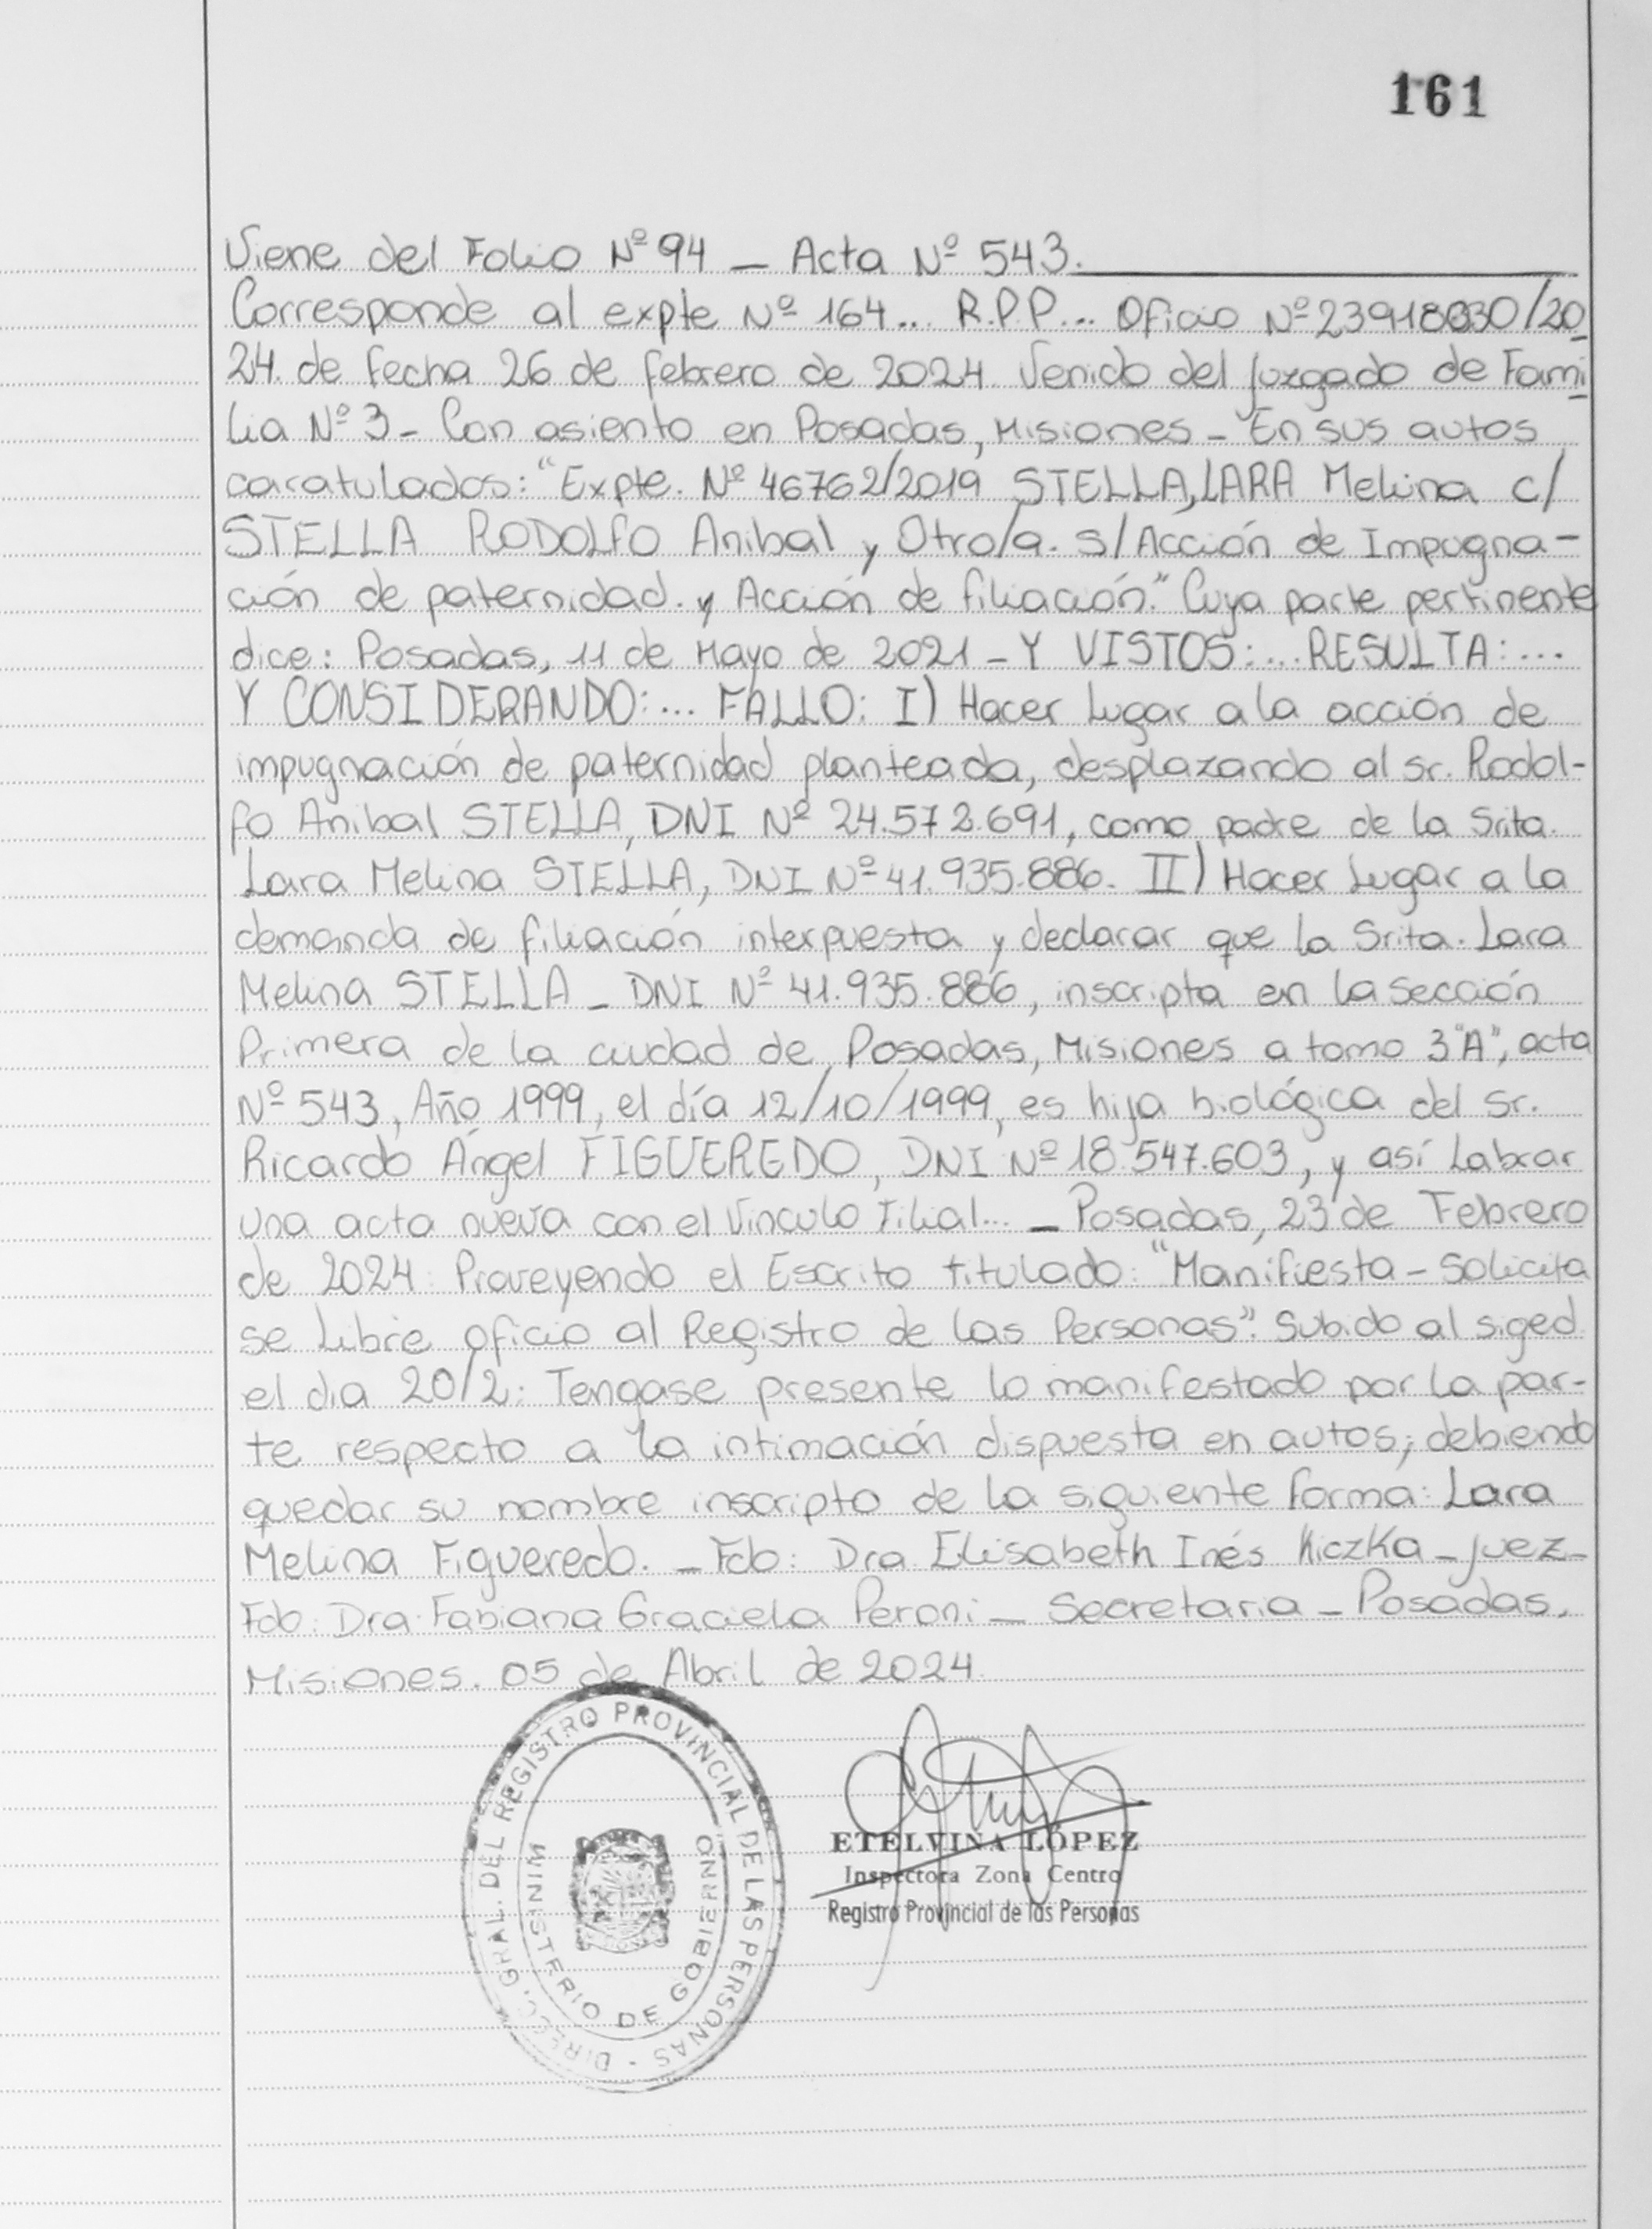 161
Viene del Folio Nº 94 _ Acta Nº 543.
Corresponde al expte Nº 164... R.P.P... Oficio Nº 23918030/20
24. de fecha 26 de febrero de 2024. Venido del Juzgado de Fami
lia Nº 3 - Con asiento en Posadas, Misiones - En sus autos
caratulados: "Expte. Nº 46762/2019 STELLA, LARA Melina c/
STELLA RODOLFO Anibal y Otro/a. s/ Acción de Impugna-
ción de paternidad. y Acción de filiación." Cuya parte pertinente
dice: Posadas, 11 de Mayo de 2021 - Y VISTOS: ... RESULTA: ...
Y CONSIDERANDO: ... FALLO: I) Hacer Lugar a la acción de
impugnación de paternidad planteada, desplazando al sr. Rodol-
fo Anibal STELLA, DNI Nº 24.572.691, como padre de la Srita.
Lara Melina STELLA, DNI Nº 41.935.886. II) Hacer Lugar a la
demanda de filiación interpuesta y declarar que la Srita. Lara
Melina STELLA _ DNI Nº 41.935.886, inscripta en la Sección
Primera de la ciudad de Posadas, Misiones a tomo 3 "A", acta
Nº 543, Año 1999, el día 12/10/1999, es hija biológica del Sr.
Ricardo Ángel FIGUEREDO, DNI Nº 18.547.603, y así Labrar
una acta nueva con el Vinculo Filial... _ Posadas, 23 de Febrero
de 2024: Proveyendo el Escrito titulado: "Manifiesta - Solicita
se Libre oficio al Registro de las Personas". Subido al siged
el dia 20/2: Tengase presente lo manifestado por la par-
te respecto a la intimación dispuesta en autos; debiendo
quedar su nombre inscripto de la siguiente forma: Lara
Melina Figueredo. _ Fdo: Dra Elisabeth Inés Kiczka _ Juez _
Fdo: Dra. Fabiana Graciela Peroni _ Secretaria _ Posadas,
Misiones. 05 de Abril de 2024.
DIRECC. GRAL. DEL REGISTRO PROVINCIAL DE LAS PERSONAS -
MINISTERIO DE GOBIERNO
ETELVINA LÓPEZ
Inspectora Zona Centro
Registro Provincial de las Personas